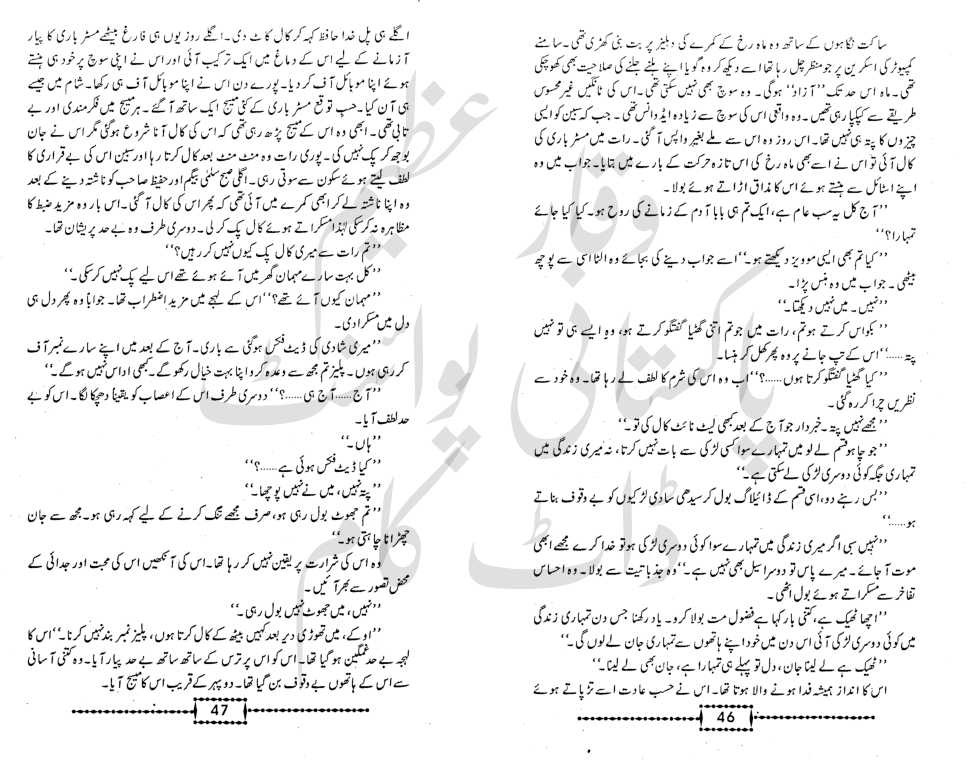 ساکت نگاہوں کے ساتھ وہ ماہ رخ کے کمرے کی دہلیز پر بت بنی کھڑی تھی۔ سامنے
کمپیوٹر کی اسکرین پر جو منظر چل رہا تھا اسے دیکھ کر وہ گویا اپنے ہلنے جلنے کی صلاحیت بھی کھو چکی
تھی۔ ماہ اس حد تک ’’آزاد‘‘ ہوگی۔ وہ سوچ بھی نہیں سکتی تھی۔ اس کی ٹانگیں غیر محسوس
طریقے سے کپکپا رہی تھیں۔ وہ واقعی اس کی سوچ سے زیادہ ایڈوانس تھی۔ جب کہ سبین کو ایسی
چیزوں کا پتہ ہی نہیں تھا۔ اس روز وہ اس سے ملے بغیر واپس آگئی۔ رات میں مسٹر باری کی
کال آئی تو اس نے اسے بھی ماہ رخ کی اس تازہ حرکت کے بارے میں بتایا۔ جواب میں وہ
اپنے اسٹائل سے ہنستے ہوئے اس کا مذاق اڑاتے ہوئے بولا۔
’’آج کل یہ سب عام ہے، ایک تم ہی بابا آدم کے زمانے کی روح ہو۔ کیا کیا جائے
تمہارا؟‘‘
’’کیا تم بھی ایسی موویز دیکھتے ہو۔‘‘ اسے جواب دینے کی بجائے وہ الٹا اسی سے پوچھ
بیٹھی۔ جواب میں وہ ہنس پڑا۔
’’نہیں۔ میں نہیں دیکھتا۔‘‘
’’بکواس کرتے ہو تم، رات میں جو تم اتنی گھٹیا گفتگو کرتے ہو، وہ ایسے ہی تو نہیں
پتہ......‘‘ اس کے تپ جانے پر وہ پھر کھل کر ہنسا۔
’’کیا گھٹیا گفتگو کرتا ہوں......؟‘‘ اب وہ اس کی شرم کا لطف لے رہا تھا۔ وہ خود سے
نظریں چرا کر رہ گئی۔
’’مجھے نہیں پتہ۔ خبردار جو آج کے بعد کبھی لیٹ نائٹ کال کی تو۔‘‘
’’جو چاہو قسم لے لو میں تمہارے سوا کسی لڑکی سے بات نہیں کرتا، نہ میری زندگی میں
تمہاری جگہ کوئی دوسری لڑکی لے سکتی ہے۔‘‘
’’بس رہنے دو، اسی قسم کے ڈائیلاگ بول کر سیدھی سادی لڑکیوں کو بے وقوف بناتے
ہو......‘‘
’’نہیں سبی اگر میری زندگی میں تمہارے سوا کوئی دوسری لڑکی ہو تو خدا کرے مجھے ابھی
موت آجائے۔ میرے پاس تو دوسرا سیل بھی نہیں ہے۔‘‘ وہ جذباتیت سے بولا۔ وہ احساس
تفاخر سے مسکراتے ہوئے بول اٹھی۔
’’اچھا ٹھیک ہے، کتنی بار کہا ہے فضول مت بولا کرو۔ یاد رکھنا جس دن تمہاری زندگی
میں کوئی دوسری لڑکی آئی اس دن میں خود اپنے ہاتھوں سے تمہاری جان لے لوں گی۔‘‘
’’ٹھیک ہے لے لینا جان، دل تو پہلے ہی تمہارا ہے، جان بھی لے لینا۔‘‘
اس کا انداز ہمیشہ فدا ہونے والا ہوتا تھا۔ اس نے حسب عادت اسے تڑپاتے ہوئے
46
اگلے ہی پل خدا حافظ کہہ کر کال کاٹ دی۔ اگلے روز یوں ہی فارغ بیٹھے مسٹر باری کا پیار
آزمانے کے لیے اس کے دماغ میں ایک ترکیب آئی اور اس نے اپنی سوچ پر خود ہی ہنستے
ہوئے اپنا موبائل آف کر دیا۔ پورے دن اس نے اپنا موبائل آف ہی رکھا۔ شام میں جیسے
ہی آن کیا۔ حسب توقع مسٹر باری کے کئی میسج ایک ساتھ آگئے۔ ہر میسج میں فکرمندی اور بے
تابی تھی۔ ابھی وہ اس کے میسج پڑھ رہی تھی کہ اس کی کال آنا شروع ہوگئی مگر اس نے جان
بوجھ کر پک نہیں کی۔ پوری رات وہ منٹ منٹ بعد کال کرتا رہا اور سبین اس کی بے قراری کا
لطف لیتے ہوئے سکون سے سوتی رہی۔ اگلی صبح سلمٰی بیگم اور حفیظ صاحب کو ناشتہ دینے کے بعد
وہ اپنا ناشتہ لے کر ابھی کمرے میں آئی تھی کہ پھر اس کی کال آگئی۔ اس بار وہ مزید ضبط کا
مظاہرہ نہ کر سکی لہٰذا مسکراتے ہوئے کال پک کر لی۔ دوسری طرف وہ بے حد پریشان تھا۔
’’تم رات سے میری کال پک کیوں نہیں کر رہیں؟‘‘
’’کل بہت سارے مہمان گھر میں آئے ہوئے تھے اس لیے پک نہیں کرسکی۔‘‘
’’مہمان کیوں آئے تھے؟‘‘ اس کے لہجے میں مزید اضطراب تھا۔ جواباً وہ پھر دل ہی
دل میں مسکرا دی۔
’’میری شادی کی ڈیٹ فکس ہوگئی سے باری۔ آج کے بعد میں اپنے سارے نمبر آف
کر رہی ہوں۔ پلیز تم مجھ سے وعدہ کرو اپنا بہت خیال رکھو گے۔ کبھی اداس نہیں ہو گے۔‘‘
’’آج......آج ہی......؟‘‘ دوسری طرف اس کے اعصاب کو یقیناً دھچکا لگا۔ اس کو بے
حد لطف آیا۔
’’ہاں۔‘‘
’’کیا ڈیٹ فکس ہوئی ہے......؟‘‘
’’پتہ نہیں، میں نے نہیں پوچھا۔‘‘
’’تم جھوٹ بول رہی ہو، صرف مجھے تنگ کرنے کے لیے کہہ رہی ہو۔ مجھ سے جان
چھڑانا چاہتی ہو۔‘‘
وہ اس کی شرارت پر یقین نہیں کر رہا تھا۔ اس کی آنکھیں اس کی محبت اور جدائی کے
محض تصور سے بھر آئیں۔
’’نہیں، میں جھوٹ نہیں بول رہی۔‘‘
’’او کے، میں تھوڑی دیر بعد کہیں بیٹھ کے کال کرتا ہوں، پلیز نمبر بند نہیں کرنا۔‘‘ اس کا
لہجہ بے حد غمگین ہو گیا تھا۔ اس کو اس پر ترس کے ساتھ ساتھ بے حد پیار آیا۔ وہ کتنی آسانی
سے اس کے ہاتھوں بے وقوف بن گیا تھا۔ دوپہر کے قریب اس کا میسج آیا۔
47
وقار عظیم
پاکستانی پوائنٹ
ڈاٹ کام